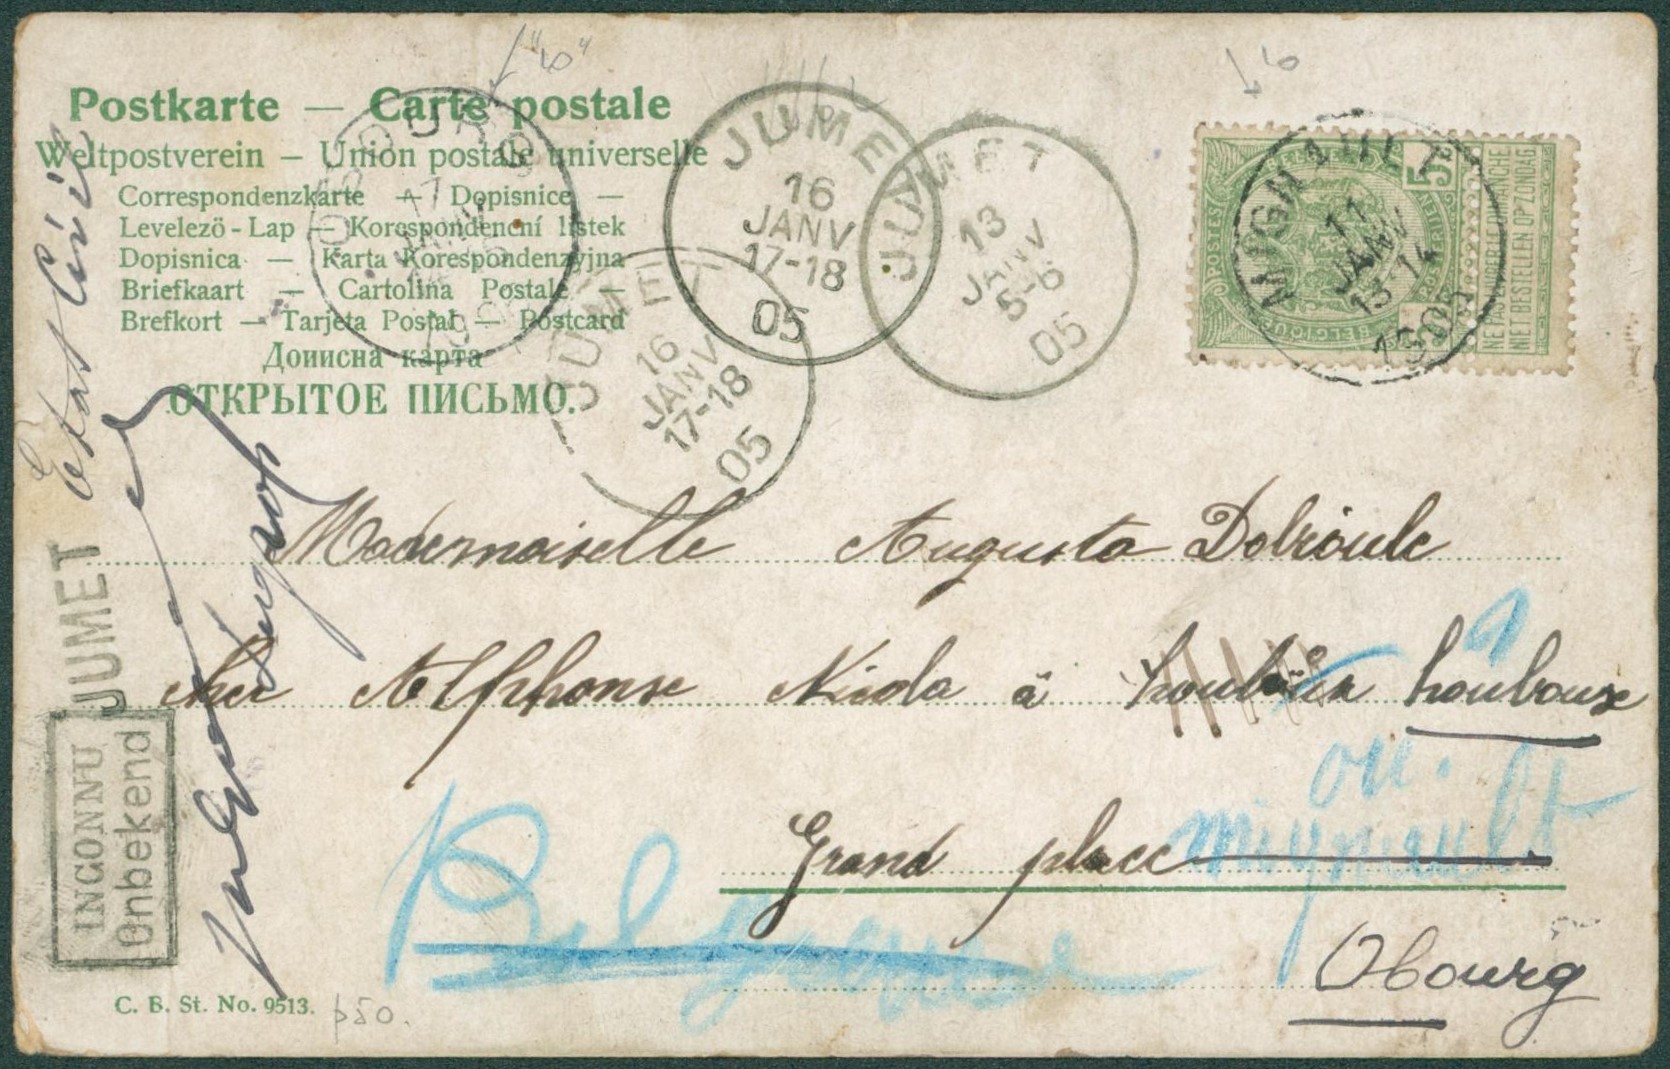 Postkarte — Carte postale
Weltpostverein — Union postale universelle
Correspondenzkarte — Dopisnice —
Levelezö-Lap — Korespondencní lístek
Dopisnica — Karta Korespondenzyjna
Briefkaart — Cartolina Postale —
Brefkort — Tarjeta Postal — Postcard
Доиисна карта
ОТКРЫТОЕ ПИСЬМО.
"6"
6
OBOURG
17
JANV
JUMET
16
JANV
17-18
05
JUMET
13
JANV
5-6
05
JUMET
16
JANV
17-18
05
MIGNAULT
11
JANV
13-14
1905
5
POSTES
BELGIQUE
NE PAS LIVRER LE DIMANCHE
NIET BESTELLEN OP ZONDAG
Etat Civil
JUMET
INGONNU
Onbekend
Mademoiselle Augusta Delvoule
chez Alphonse Nicola à houbousse
ou
Grand place mignault
Belgique
Obourg
C. B. St. No. 9513.
p50.